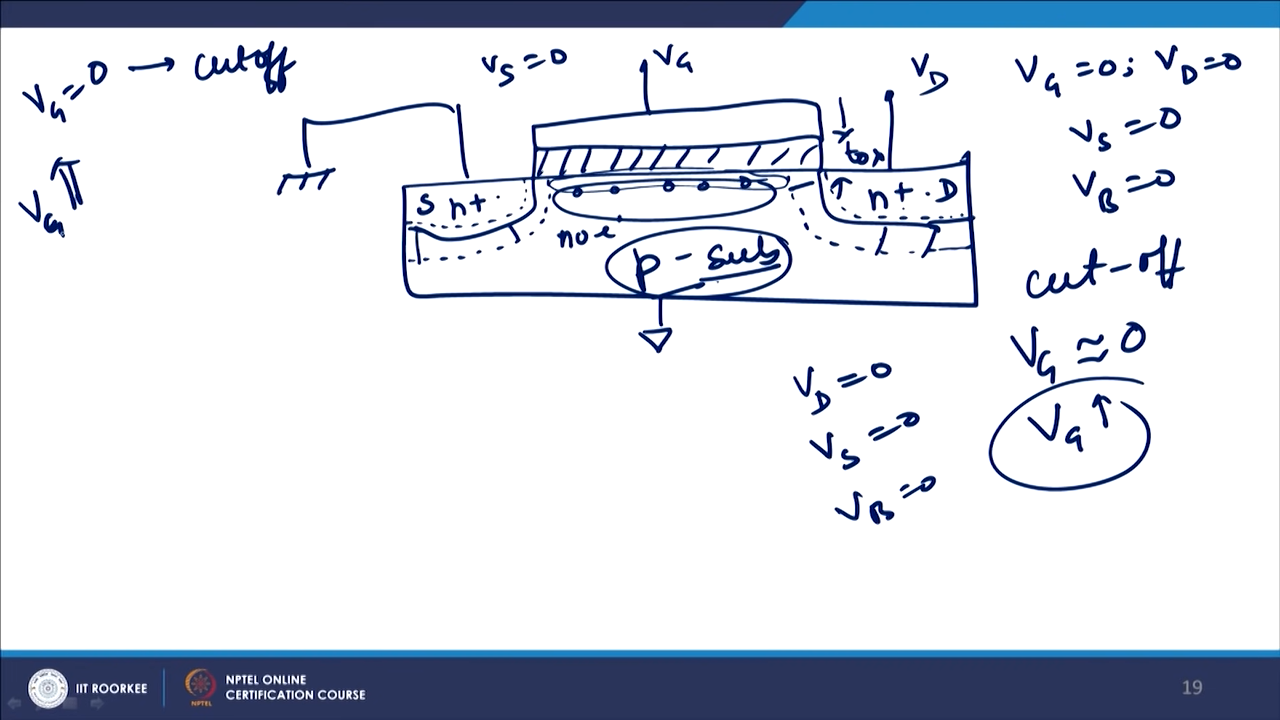 V_G = 0 → cutoff
V_G ⇑
V_S = 0
V_G
V_D
t_ox
S n+
n+ D
no e⁻
p - sub
V_G = 0 ; V_D = 0
V_S = 0
V_B = 0
cut-off
V_G ≈ 0
V_G ↑
V_D = 0
V_S = 0
V_B = 0
IIT ROORKEE
NPTEL ONLINE
CERTIFICATION COURSE
NPTEL
19